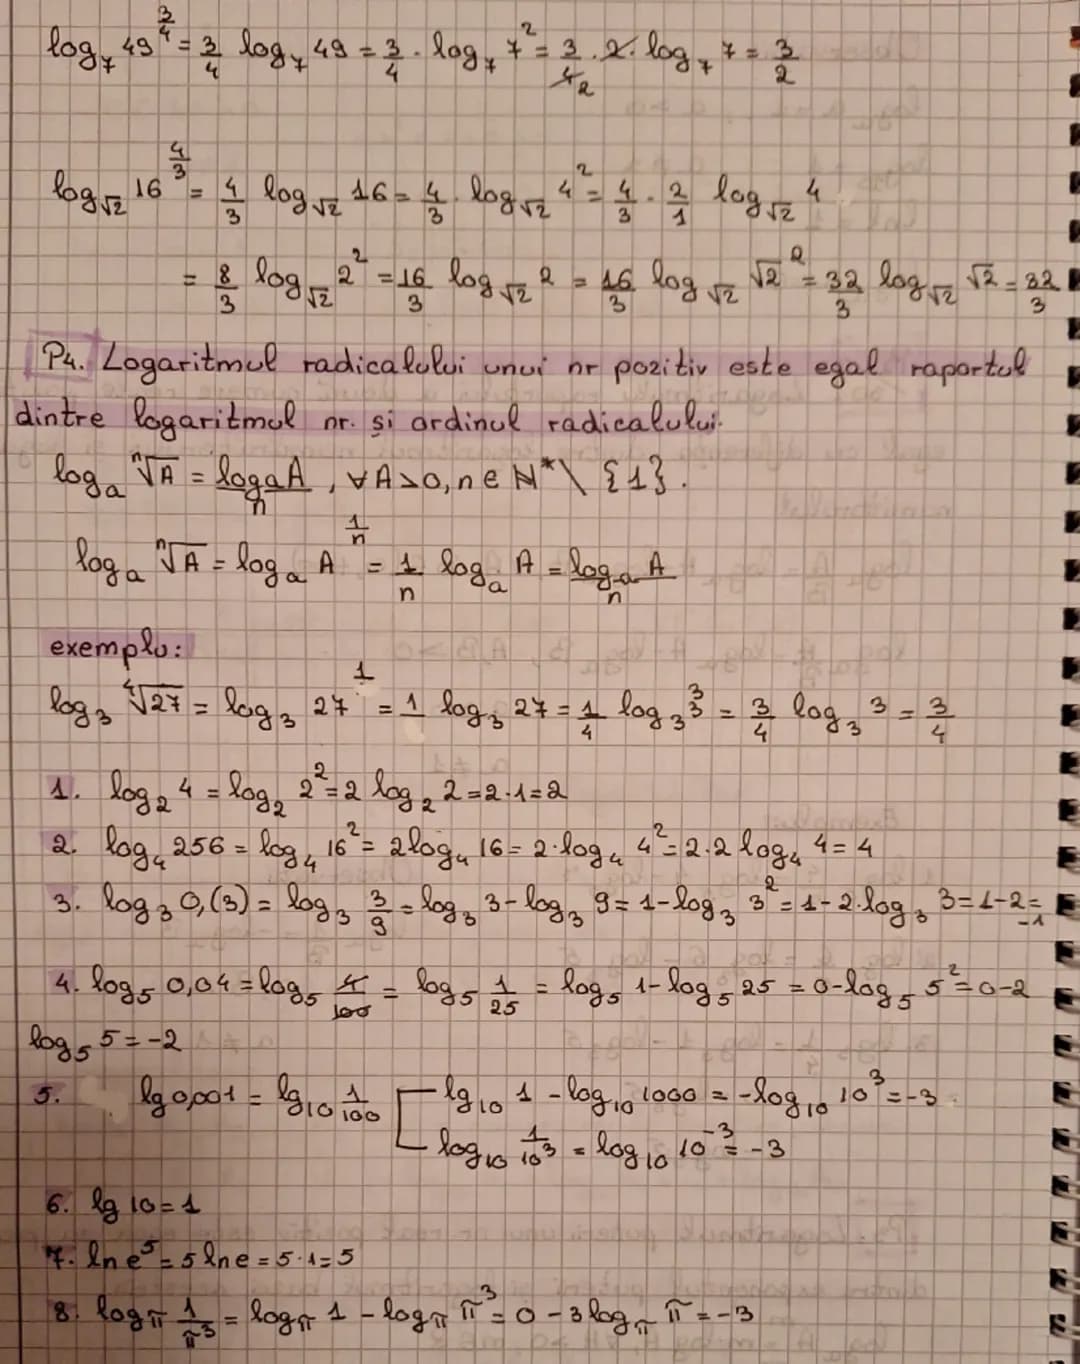 log₇ 49^(3/4) = 3/4 log₇ 49 = 3/4 · log₇ 7² = 3/4̶₂ · 2̶ · log₇ 7 = 3/2
log_√2 16^(4/3) = 4/3 log_√2 16 = 4/3 · log_√2 4² = 4/3 · 2/1 log_√2 4
= 8/3 log_√2 2² = 16/3 log_√2 2 = 16/3 log_√2 √2² = 32/3 log_√2 √2 = 32/3
P4. Logaritmul radicalului unui nr pozitiv este egal raportul
dintre logaritmul nr. și ordinul radicalului.
logₐ ⁿ√A = logₐA/n , ∀A>0, n∈N*\ {1}.
logₐ ⁿ√A = logₐ A^(1/n) = 1/n logₐ A = logₐ A/n
exemplu:
log₃ ⁴√27 = log₃ 27^1 = 1 log₃ 27 = 1/4 log₃ 3³ = 3/4 log₃ 3 = 3/4
1. log₂ 4 = log₂ 2² = 2 log₂ 2 = 2·1 = 2
2. log₄ 256 = log₄ 16² = 2log₄ 16 = 2·log₄ 4² = 2·2 log₄ 4 = 4
3. log₃ 0,(3) = log₃ 3/9 = log₃ 3 - log₃ 9 = 1 - log₃ 3² = 1 - 2·log₃ 3 = 1-2 = -1
4. log₅ 0,04 = log₅ 4̶/1̶0̶0̶ = log₅ 1/25 = log₅ 1 - log₅ 25 = 0 - log₅ 5² = 0-2
log₅ 5 = -2
5. lg 0,001 = lg₁₀ 1/100 lg₁₀ 1 - log₁₀ 1000 = -log₁₀ 10³ = -3
log₁₀ 1/10³ = log₁₀ 10⁻³ = -3
6. lg 10 = 1
7. ln e⁵ = 5 ln e = 5·1 = 5
8. log_π 1/π³ = log_π 1 - log_π π³ = 0 - 3 log_π π = -3